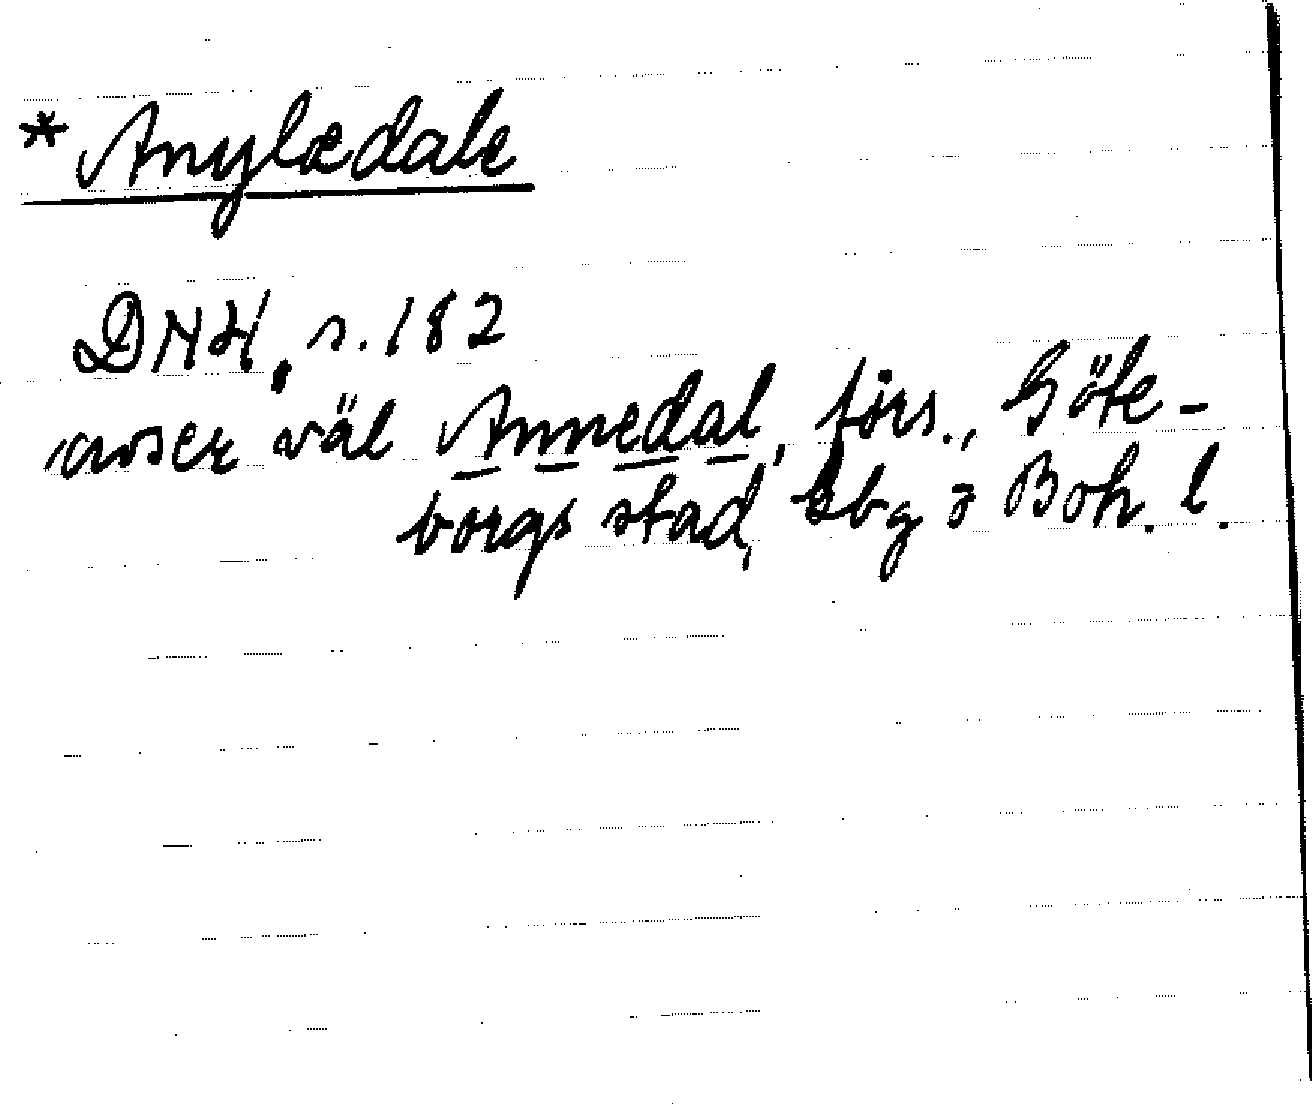 * Anylædale
DN4, s. 182
avser väl Annedal, förs., Göte-
borgs stad, Gbg o Boh. l.